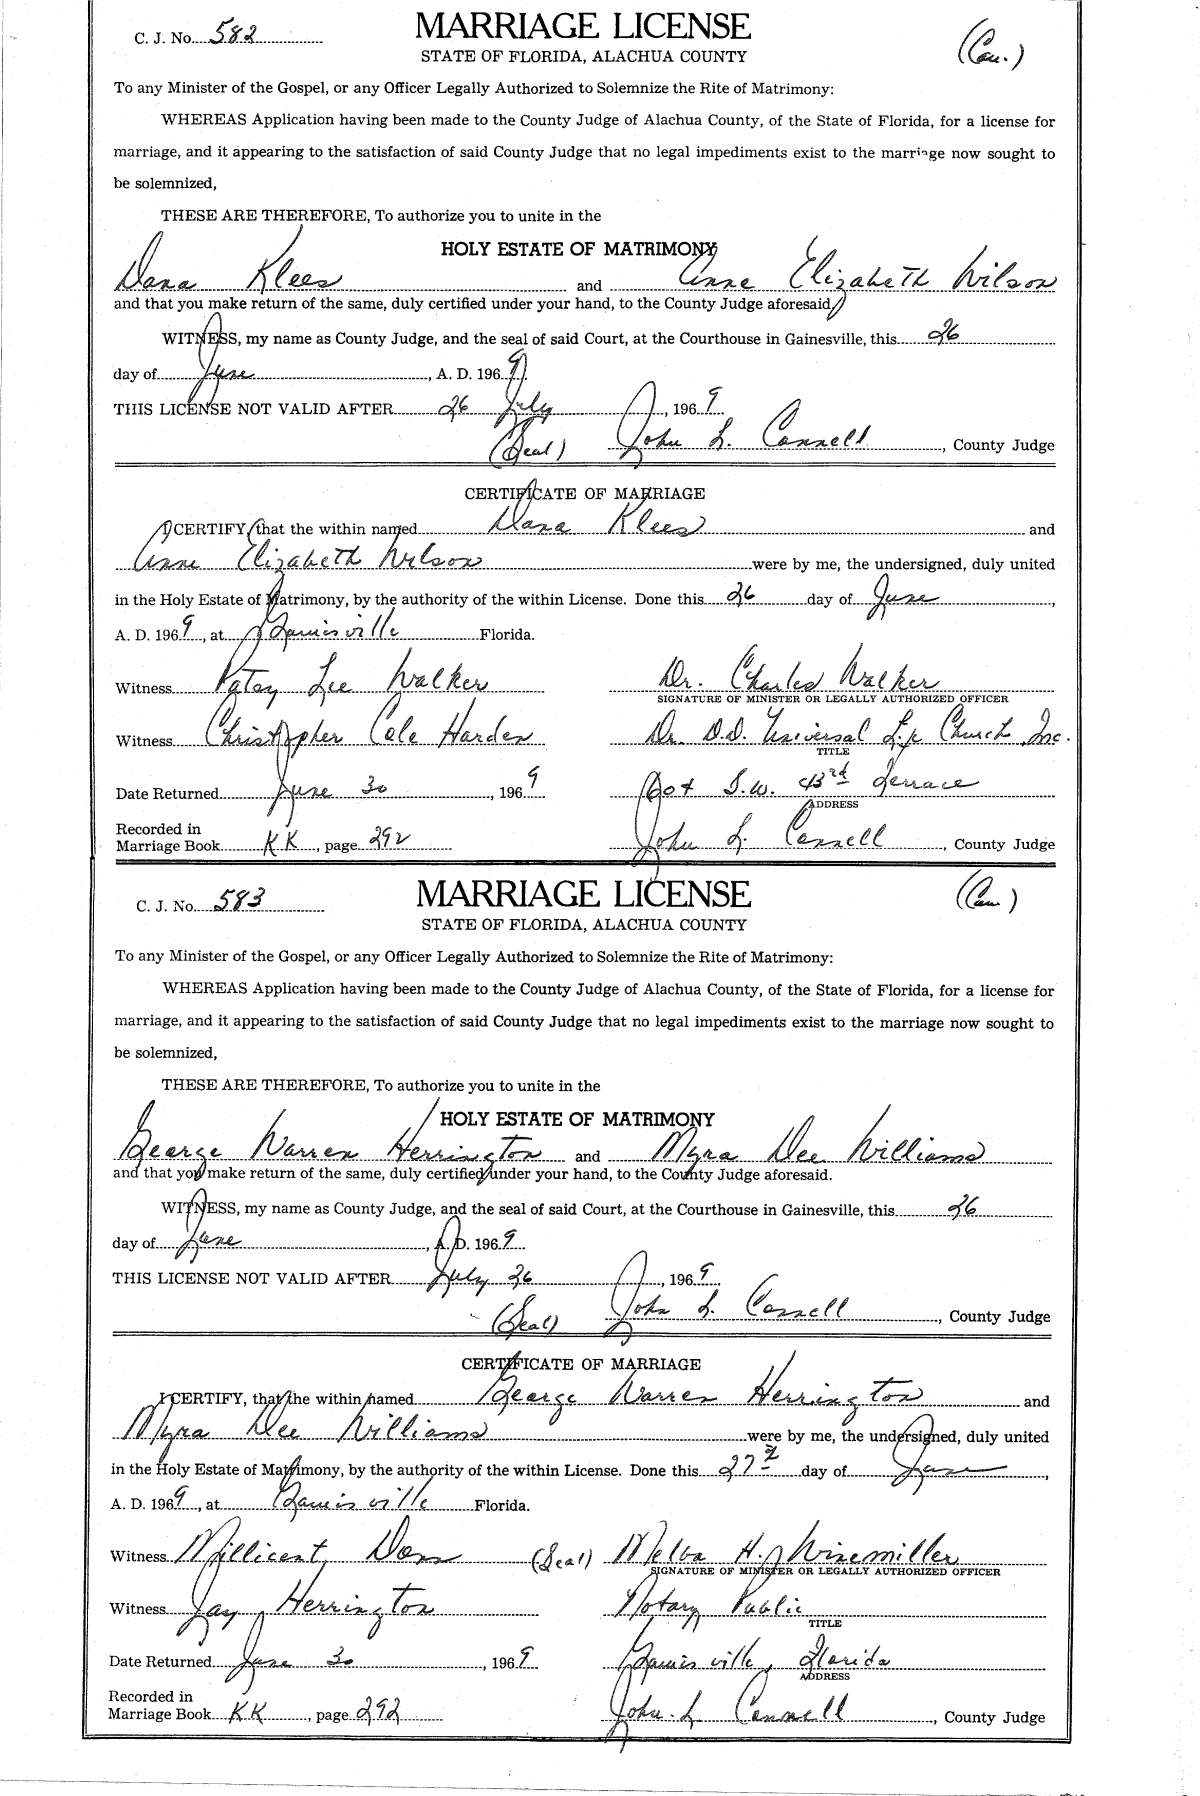 C. J. No. 582
MARRIAGE LICENSE
(Cau.)
STATE OF FLORIDA, ALACHUA COUNTY
To any Minister of the Gospel, or any Officer Legally Authorized to Solemnize the Rite of Matrimony:
WHEREAS Application having been made to the County Judge of Alachua County, of the State of Florida, for a license for
marriage, and it appearing to the satisfaction of said County Judge that no legal impediments exist to the marriage now sought to
be solemnized,
THESE ARE THEREFORE, To authorize you to unite in the
HOLY ESTATE OF MATRIMONY
Dana Klees and Anne Elizabeth Wilson
and that you make return of the same, duly certified under your hand, to the County Judge aforesaid.
WITNESS, my name as County Judge, and the seal of said Court, at the Courthouse in Gainesville, this 26
day of June, A. D. 1969.
THIS LICENSE NOT VALID AFTER 26 July, 1969
(Seal) John L. Connell, County Judge
CERTIFICATE OF MARRIAGE
I CERTIFY that the within named Dana Klees and
Anne Elizabeth Wilson were by me, the undersigned, duly united
in the Holy Estate of Matrimony, by the authority of the within License. Done this 26 day of June,
A. D. 1969, at Gainesville Florida.
Witness Patsy Lee Walker Dr. Charles Walker
SIGNATURE OF MINISTER OR LEGALLY AUTHORIZED OFFICER
Witness Christopher Cole Harden Dr. D.D. Universal Church, Inc.
TITLE
Date Returned June 30, 1969 S.W. 43rd Terrace
ADDRESS
Recorded in
Marriage Book KK, page 292 John L. Connell, County Judge
C. J. No. 583
MARRIAGE LICENSE
(Cau.)
STATE OF FLORIDA, ALACHUA COUNTY
To any Minister of the Gospel, or any Officer Legally Authorized to Solemnize the Rite of Matrimony:
WHEREAS Application having been made to the County Judge of Alachua County, of the State of Florida, for a license for
marriage, and it appearing to the satisfaction of said County Judge that no legal impediments exist to the marriage now sought to
be solemnized,
THESE ARE THEREFORE, To authorize you to unite in the
HOLY ESTATE OF MATRIMONY
George Warren Herrington and Myra Dee Williams
and that you make return of the same, duly certified under your hand, to the County Judge aforesaid.
WITNESS, my name as County Judge, and the seal of said Court, at the Courthouse in Gainesville, this 26
day of June, A. D. 1969
THIS LICENSE NOT VALID AFTER July 26, 1969
(Seal) John L. Connell, County Judge
CERTIFICATE OF MARRIAGE
I CERTIFY, that the within named George Warren Herrington and
Myra Dee Williams were by me, the undersigned, duly united
in the Holy Estate of Matrimony, by the authority of the within License. Done this 27 day of June,
A. D. 1969, at Gainesville Florida.
Witness Millicent (Seal) Melba H. Winemiller
SIGNATURE OF MINISTER OR LEGALLY AUTHORIZED OFFICER
Witness Jay Herrington Notary Public
TITLE
Date Returned June 30, 1969 Gainesville, Florida
ADDRESS
Recorded in
Marriage Book KK, page 292 John L. Connell, County Judge